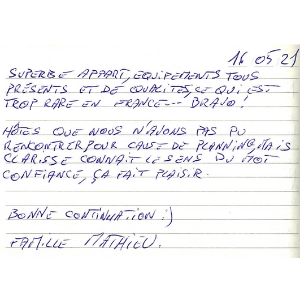 16 05 21
SUPERBE APPART, EQUIPEMENTS TOUS
PRÉSENTS ET DE QUALITÉS, CE QUI EST
TROP RARE EN FRANCE--- BRAVO!
HÔTES QUE NOUS N'AVONS PAS PU
RENCONTRER POUR CAUSE DE PLANNING, MAIS
CLARISSE CONNAIT LE SENS DU MOT
CONFIANCE, ÇA FAIT PLAISIR.
BONNE CONTINUATION :)
FAMILLE MATHIEU.